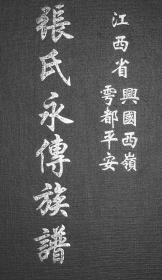 江西省
興國西嶺
雩都平安
張氏永傳族譜